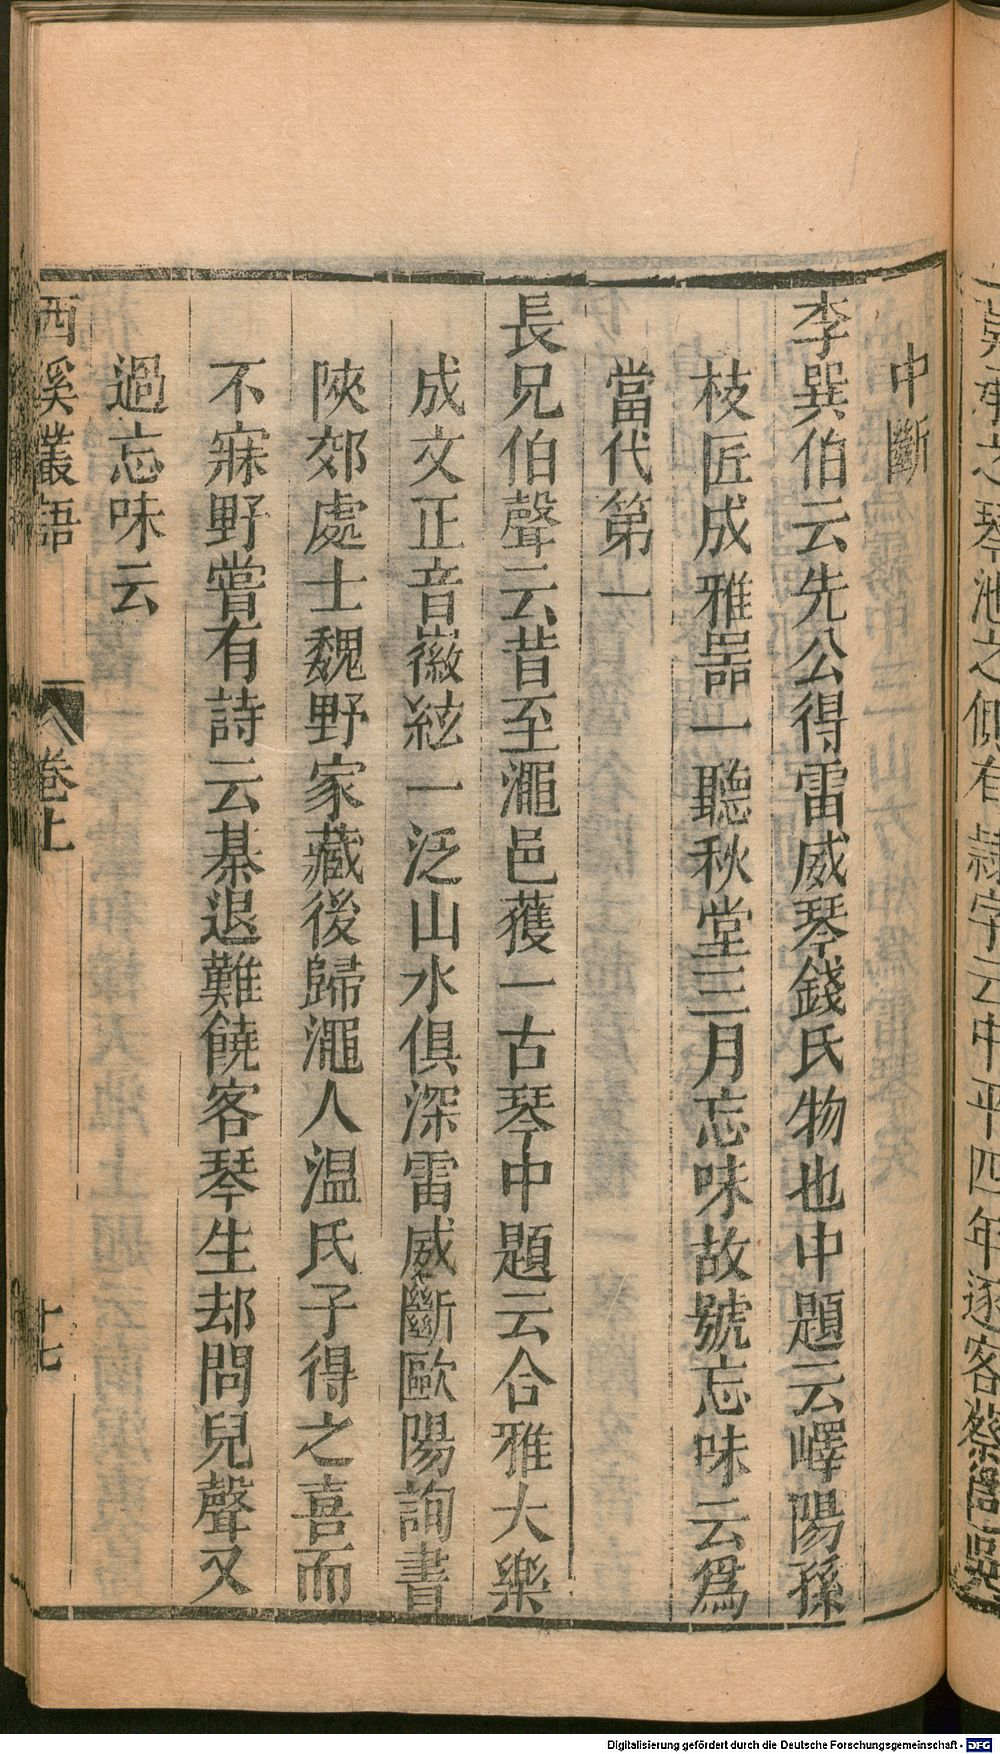 中斷
李巽伯云先公得雷威琴錢氏物也中題云嶧陽孫
枝匠成雅噐一聽秋堂三月忘味故號忘味云爲
當代第一
長兄伯聲云昔至澠邑蒦一古琴中題云合雅大樂
成文正音徽絃一泛山水俱深雷威斷歐陽詢書
陝郊處士魏野家藏後歸澠人温氏子得之喜而
不寐野嘗有詩云棊退難饒客琴生却問兒聲又
過忘味云
西溪叢語
卷上
十七
之琴池之側有隷字云中平四年逐客蔡邕吳
Digitalisierung gefördert durch die Deutsche Forschungsgemeinschaft - DFG